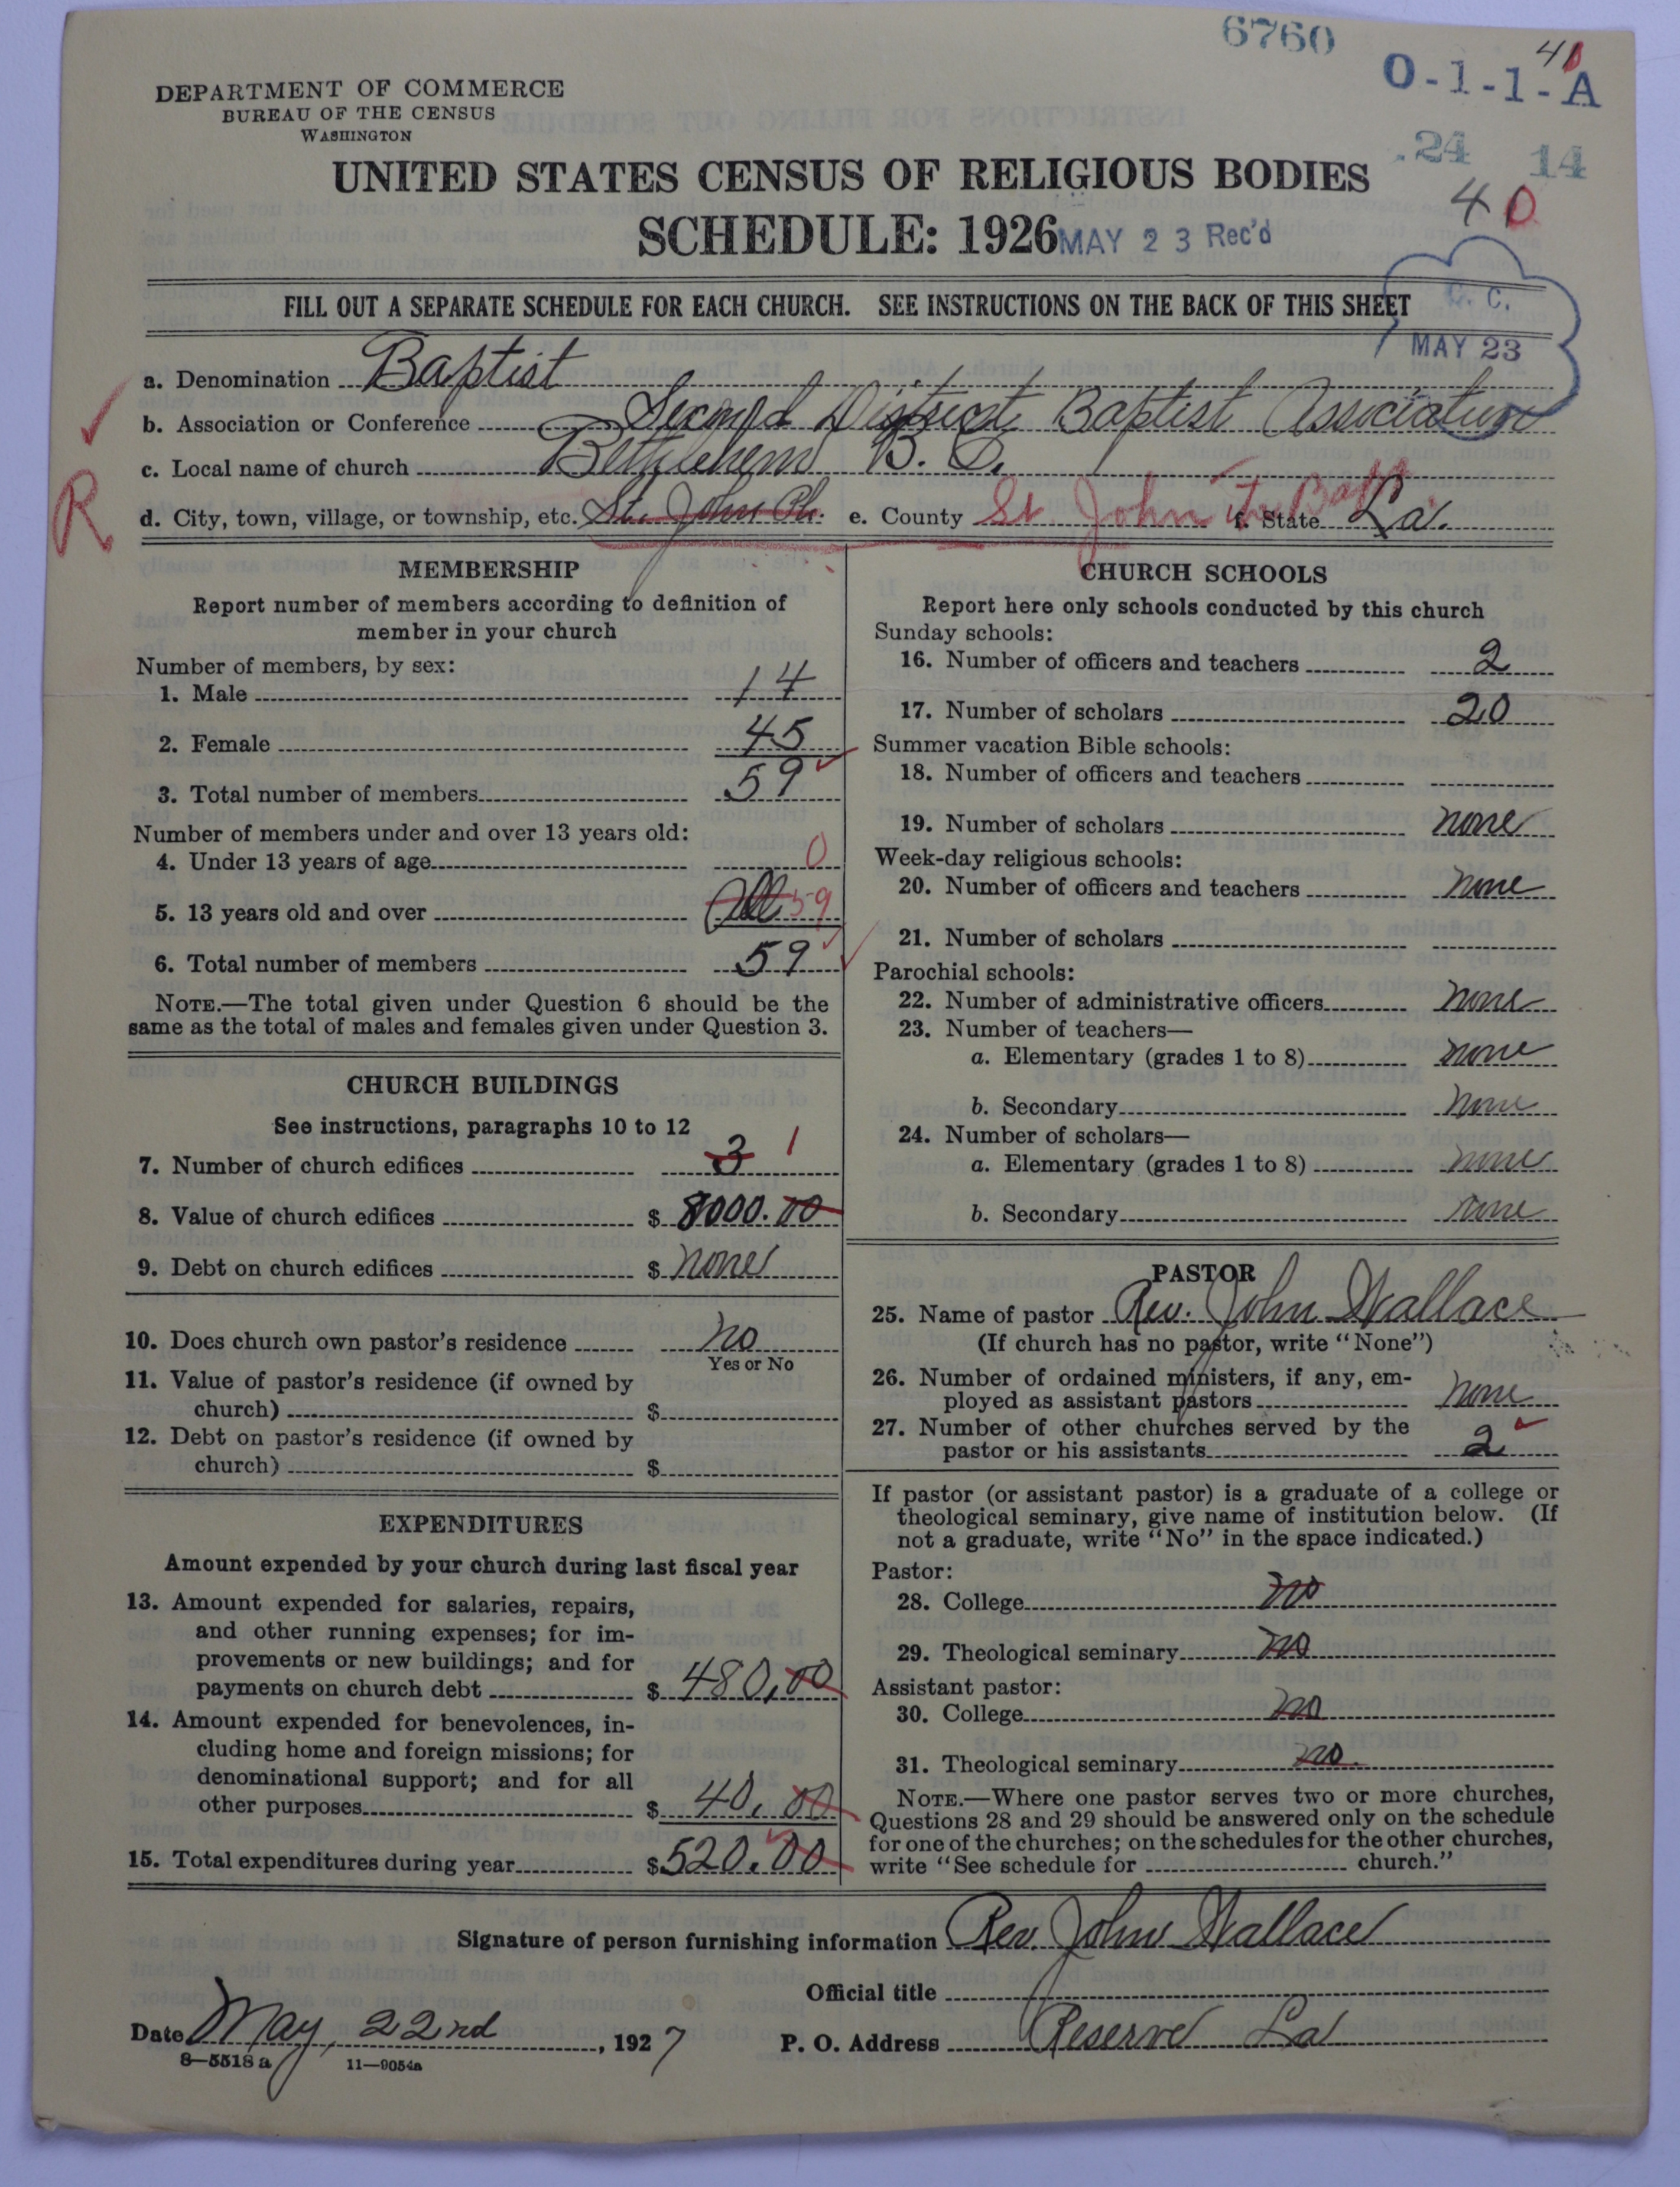 6760
41
O-1-1-A
DEPARTMENT OF COMMERCE
BUREAU OF THE CENSUS
WASHINGTON
.24 14
UNITED STATES CENSUS OF RELIGIOUS BODIES
40
SCHEDULE: 1926 MAY 23 Rec'd
FILL OUT A SEPARATE SCHEDULE FOR EACH CHURCH. SEE INSTRUCTIONS ON THE BACK OF THIS SHEET
C. C.
MAY 23
a. Denomination Baptist
b. Association or Conference Second District Baptist Association
c. Local name of church Bethlehem B. C.
R
d. City, town, village, or township, etc. St. John Ph. e. County St. John the Bapt. f. State La.
MEMBERSHIP
Report number of members according to definition of
member in your church
Number of members, by sex:
1. Male 14
2. Female 45
3. Total number of members 59
Number of members under and over 13 years old:
4. Under 13 years of age 0
5. 13 years old and over All 59
6. Total number of members 59
NOTE.—The total given under Question 6 should be the
same as the total of males and females given under Question 3.
CHURCH BUILDINGS
See instructions, paragraphs 10 to 12
7. Number of church edifices 3 1
8. Value of church edifices $ 8000.00
9. Debt on church edifices $ none
10. Does church own pastor's residence no
Yes or No
11. Value of pastor's residence (if owned by
church) $
12. Debt on pastor's residence (if owned by
church) $
EXPENDITURES
Amount expended by your church during last fiscal year
13. Amount expended for salaries, repairs,
and other running expenses; for im-
provements or new buildings; and for
payments on church debt $ 480.00
14. Amount expended for benevolences, in-
cluding home and foreign missions; for
denominational support; and for all
other purposes $ 40.00
15. Total expenditures during year $ 520.00
CHURCH SCHOOLS
Report here only schools conducted by this church
Sunday schools:
16. Number of officers and teachers 2
17. Number of scholars 20
Summer vacation Bible schools:
18. Number of officers and teachers
19. Number of scholars none
Week-day religious schools:
20. Number of officers and teachers none
21. Number of scholars
Parochial schools:
22. Number of administrative officers none
23. Number of teachers—
a. Elementary (grades 1 to 8) none
b. Secondary none
24. Number of scholars—
a. Elementary (grades 1 to 8) none
b. Secondary none
PASTOR
25. Name of pastor Rev. John Wallace
(If church has no pastor, write "None")
26. Number of ordained ministers, if any, em-
ployed as assistant pastors none
27. Number of other churches served by the
pastor or his assistants 2
If pastor (or assistant pastor) is a graduate of a college or
theological seminary, give name of institution below. (If
not a graduate, write "No" in the space indicated.)
Pastor:
28. College no
29. Theological seminary no
Assistant pastor:
30. College no
31. Theological seminary no.
NOTE.—Where one pastor serves two or more churches,
Questions 28 and 29 should be answered only on the schedule
for one of the churches; on the schedules for the other churches,
write "See schedule for church."
Signature of person furnishing information Rev. John Wallace
Official title
Date May, 22nd, 1927 P. O. Address Reserve La
8—5518 a 11—9054a